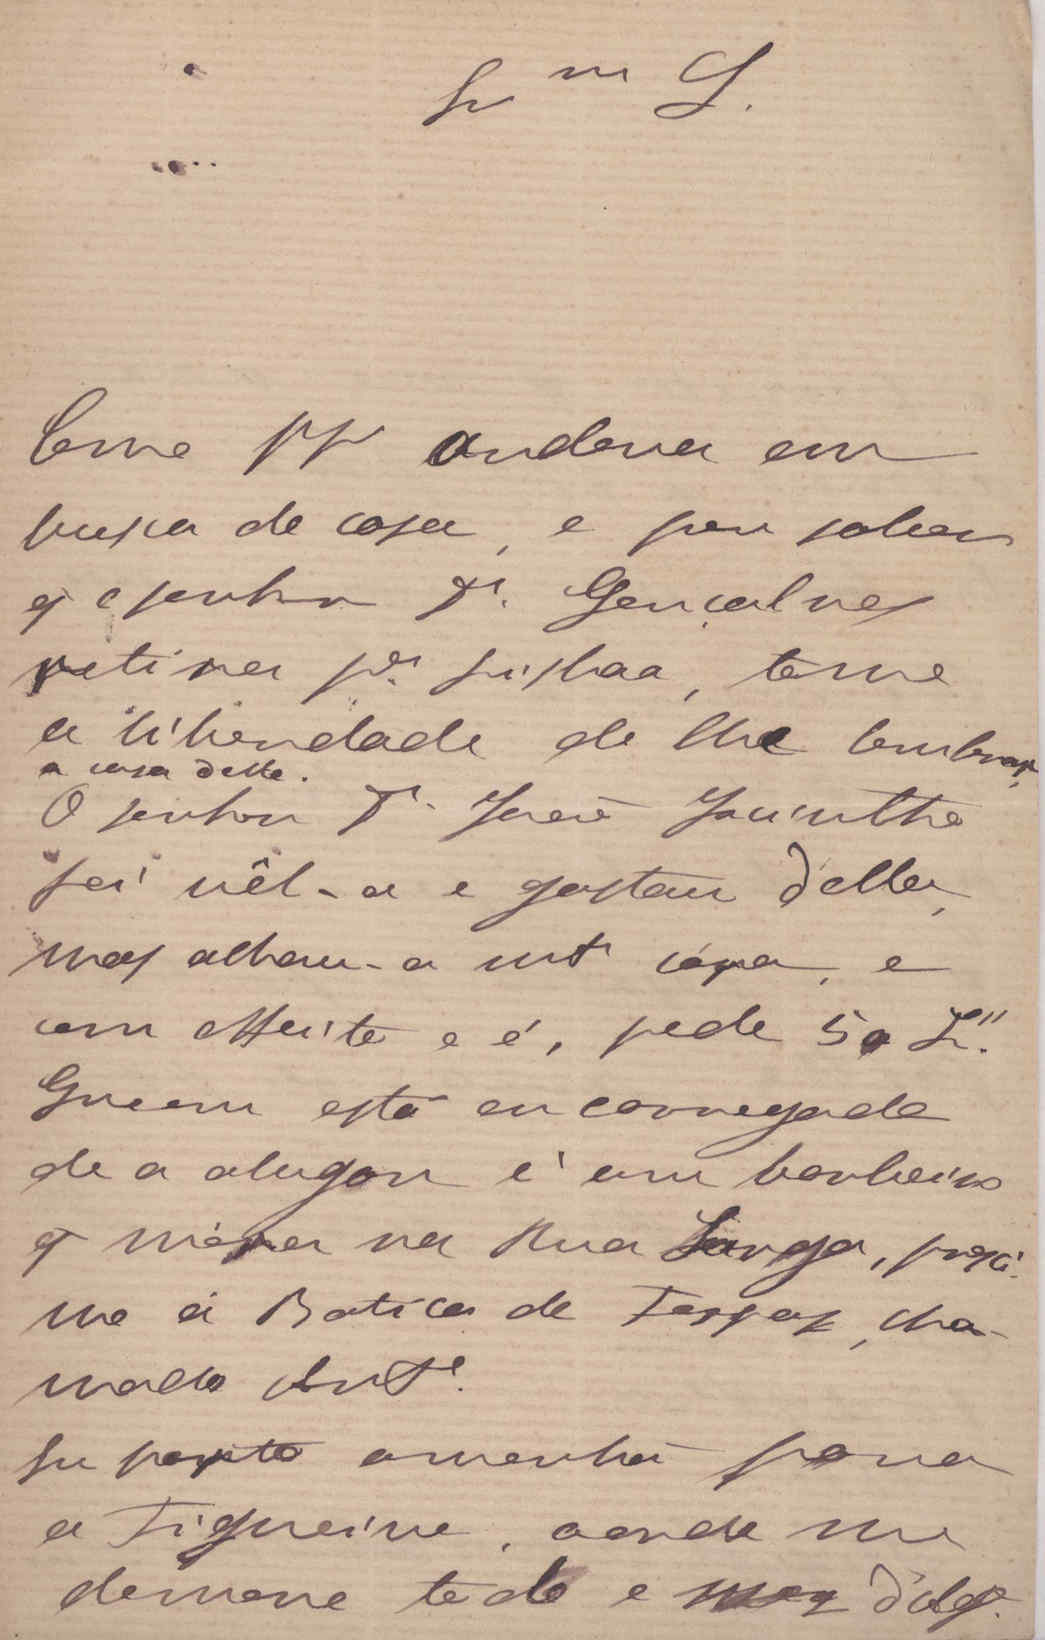 Como VV andava em
busca de casa, e por saber
q o senhor Dr. Gonçalves
retira pa. Lisboa, tomo
a liberdade de lhe lembrar
a casa delle.
O senhor Dr. José Jacintho
foi vêl-a e gostou d'ella,
mas achou-a mto cara, e
com effeito o é, pede 50 L.
Quem está encarregado
de a alugar é um banheiro
q móra na Rua Larga, proxi-
mo á Botica de Ferraz, cha-
mado Anto.
Eu parto amanhã para
a Figueira, aonde me
demoro todo o mez d'Ag.